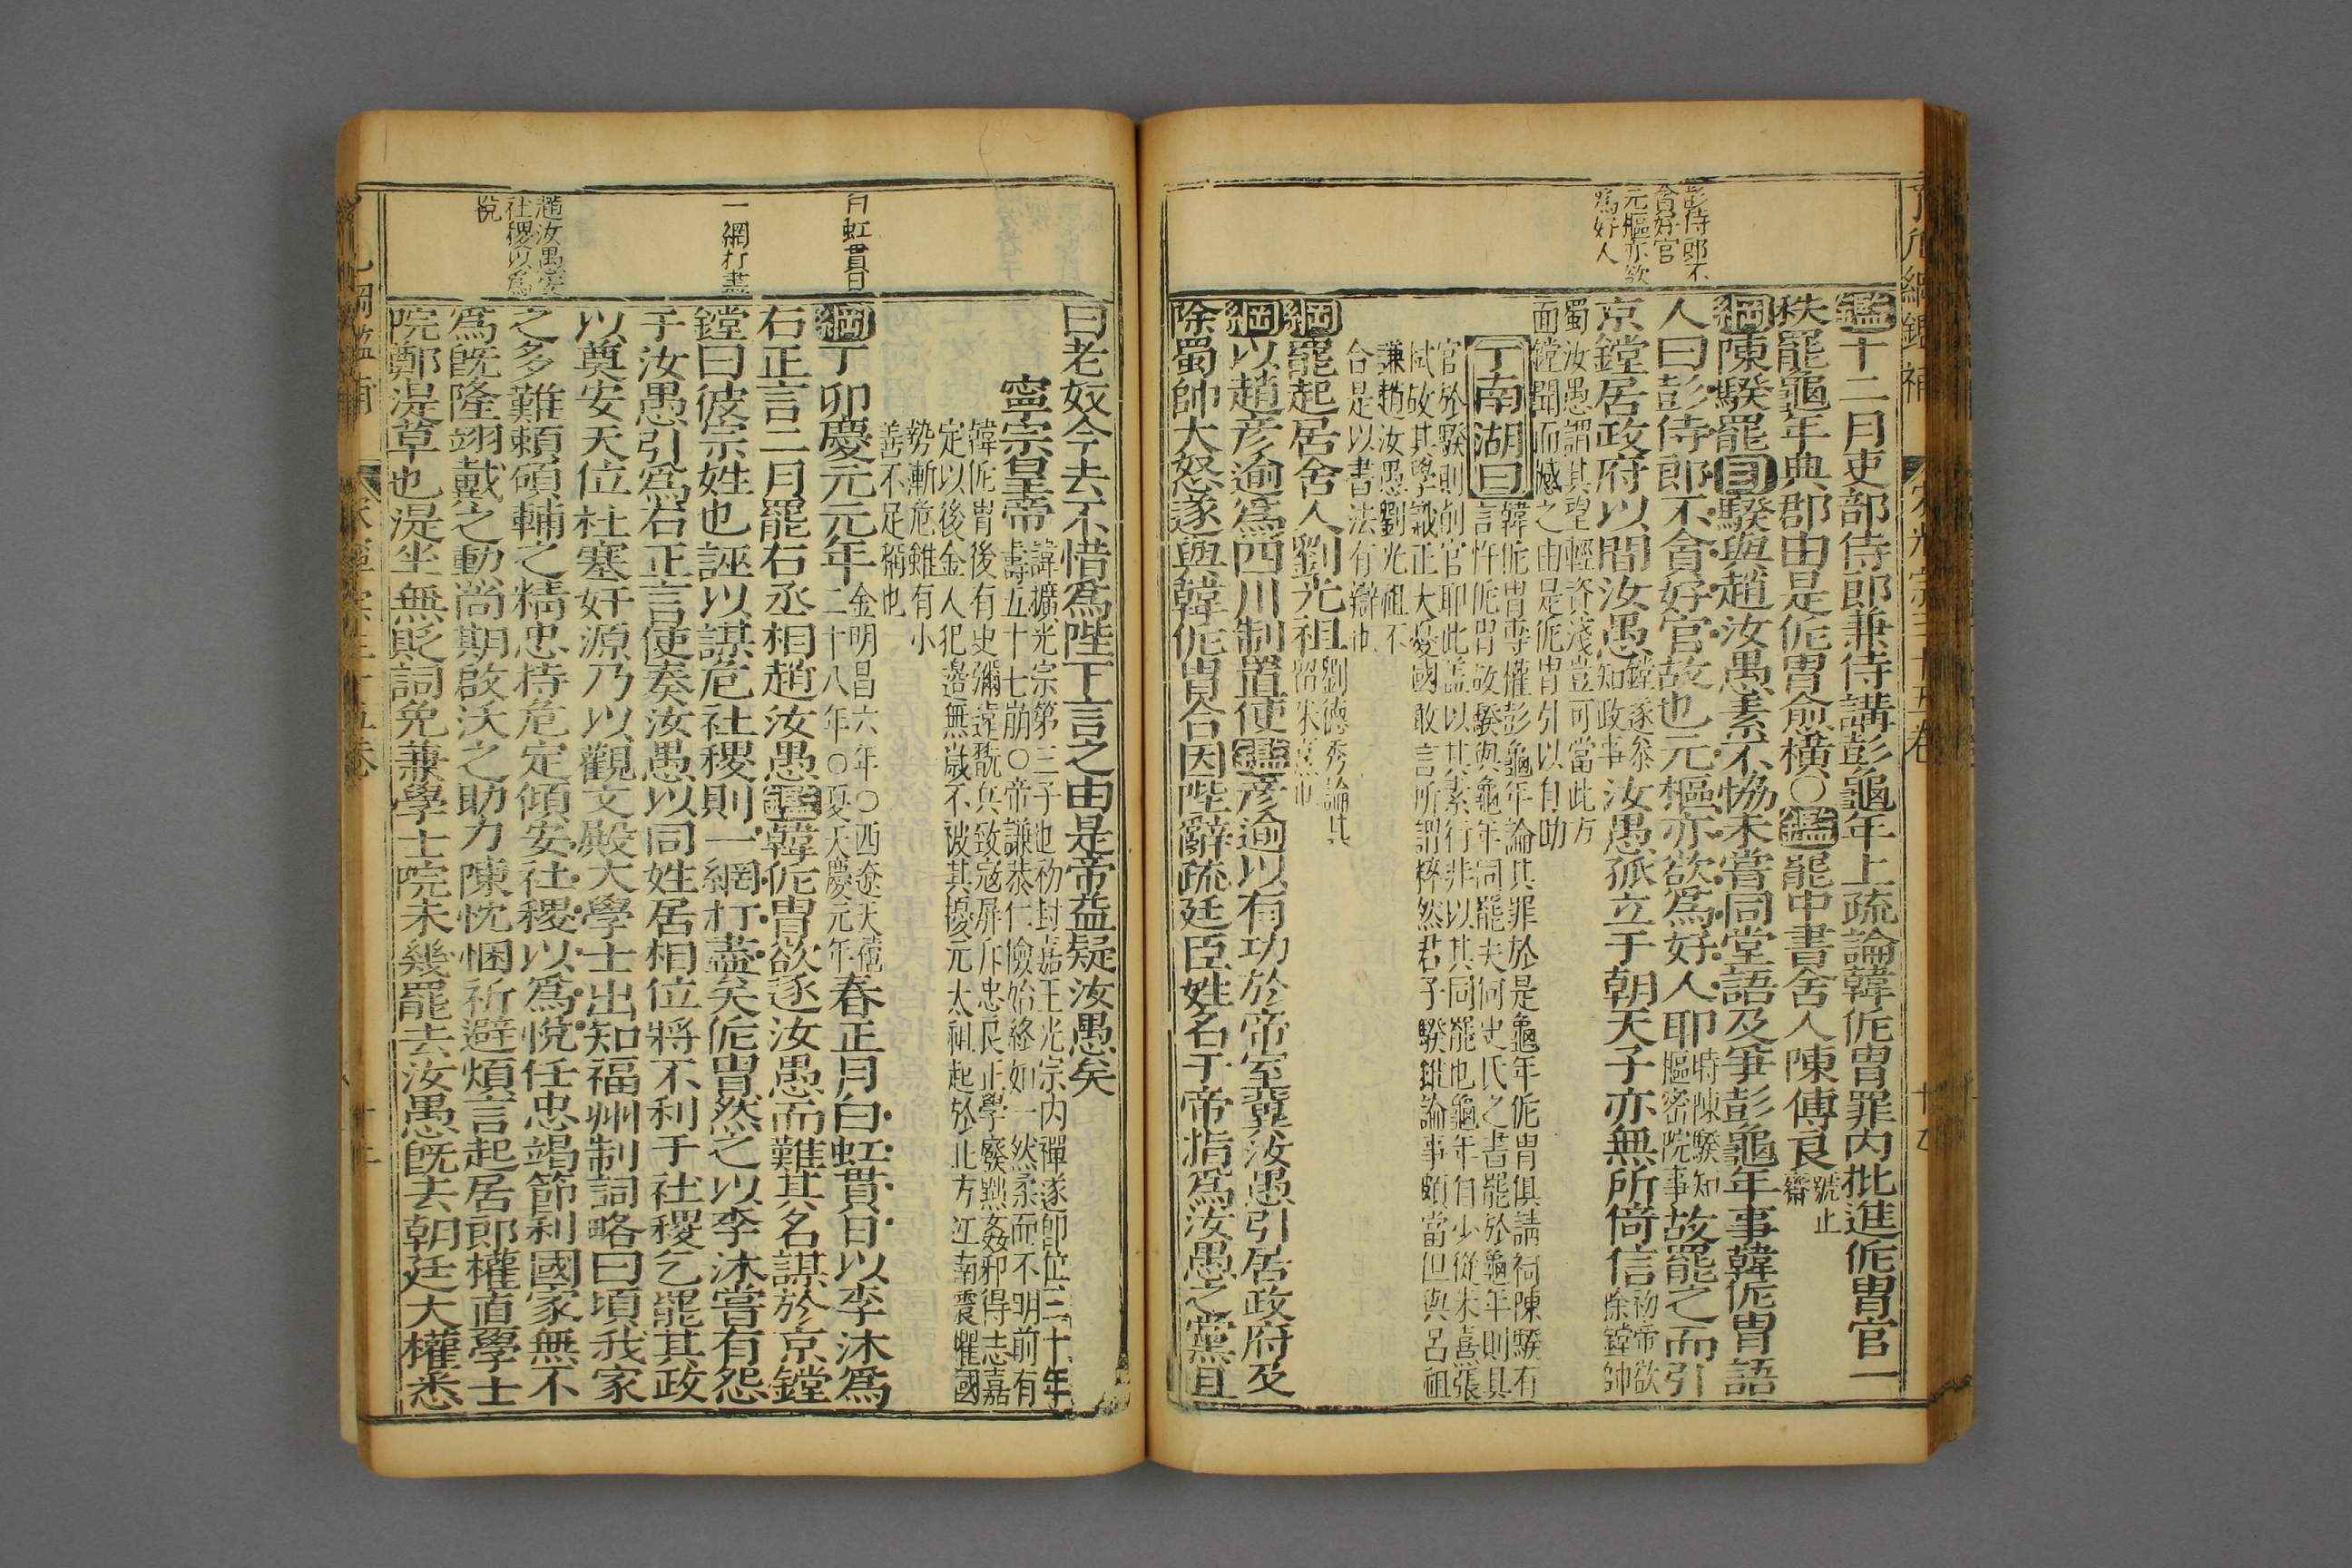 彭侍郎不
貪好官
元樞亦欲
爲好人
鑑十二月吏部侍郎兼侍講彭龜年上疏論韓侂冑罪内批進侂冑官一
秩罷龜年典郡由是侂冑愈橫○鑑罷中書舍人陳傅良號止齋
綱陳騤罷目騤與趙汝愚素不恊未嘗同堂語及爭彭龜年事韓侂冑語
人曰彭侍郎不貪好官故也元樞亦欲爲好人耶時陳騤知樞密院事故罷之而引
京鏜居政府以間汝愚鏜遂叅知政事汝愚孤立于朝天子亦無所倚信初帝欲除鏜帥
蜀汝愚謂其望輕資淺豈可當此方
面鏜聞而憾之由是侂冑引以自助
丁南湖曰韓侂冑專權彭龜年論其罪於是龜年侂冑俱請祠陳騤有
言忤侂冑故騤與龜年同罷夫何史氏之書罷於龜年則具
官於騤則削官耶此盖以其素行非以其同罷也龜年自少從朱熹張
栻故其學識正大憂國敢言所謂粹然君子騤雖論事頗當但與呂祖
謙趙汝愚劉光祖不
合是以書法有辯也
綱罷起居舍人劉光祖劉德秀論其留朱熹也
綱以趙彦逾爲四川制置使鑑彦逾以有功於帝室冀汝愚引居政府及
除蜀帥大怒遂與韓侂冑合因陛辭疏廷臣姓名于帝指爲汝愚之黨且
白虹貫日
一網打盡
趙汝愚安
社稷以爲
悅
曰老奴今去不惜爲陛下言之由是帝益疑汝愚矣
寧宗皇帝諱擴光宗第三子也初封嘉王光宗内禪遂即位三十年
壽五十七崩○帝謙恭仁儉始終如一然柔而不明前有
韓侂冑後有史彌遠翫兵致寇屏斥忠良正學廢黜姦邪得志嘉
定以後金人犯邉無歲不被其擾元太祖起於北方江南震懼國
勢漸危雖有小
善不足稱也
綱丁卯慶元元年金明昌六年○西遼天禧二十八年○夏天慶元年春正月白虹貫日以李沐爲
右正言二月罷右丞相趙汝愚鑑韓侂冑欲逐汝愚而難其名謀於京鏜
鏜曰彼宗姓也誣以謀危社稷則一網打盡矣侂冑然之以李沐嘗有怨
于汝愚引爲右正言使奏汝愚以同姓居相位將不利于社稷乞罷其政
以奠安天位杜塞奸源乃以觀文殿大學士出知福州制詞略曰頃我家
之多難賴碩輔之精忠持危定傾安社稷以爲悅任忠竭節利國家無不
爲旣隆翊戴之勳尚期啟沃之助力陳忱悃祈避煩言起居郎權直學士
院鄭湜草也湜坐無貶詞免兼學士院未幾罷去汝愚旣去朝廷大權悉